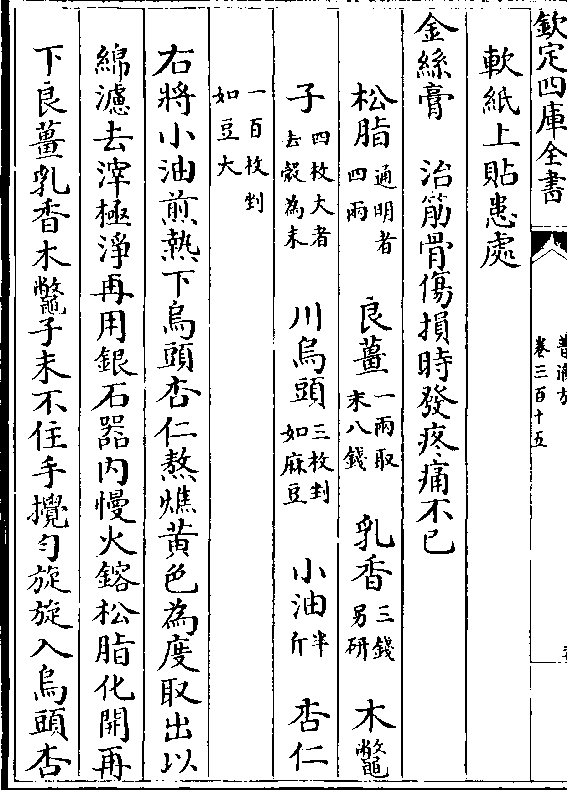 欽定四庫全書
卷三百十五
軟紙上貼患處
金絲膏　治筋骨傷損時發疼痛不已
松脂通明者四兩　良薑一兩取末八錢　乳香三錢另研　木鼈
子四枚大者去殼為末　川烏頭三枚剉如麻豆　小油半斤　杏仁
一百枚剉如豆大
右將小油煎熱下烏頭杏仁熬燋黃色為度取出以
綿濾去滓極淨再用銀石器内慢火鎔松脂化開再
下良薑乳香木鼈子末不住手攪匀旋旋入烏頭杏